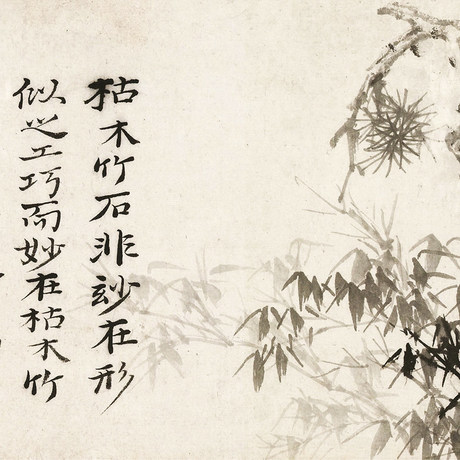 枯木竹石非妙在形
似之工巧而妙在枯木竹